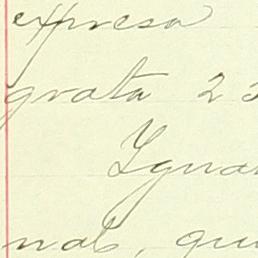 expresa
grata 23
Ygna
nal, qu